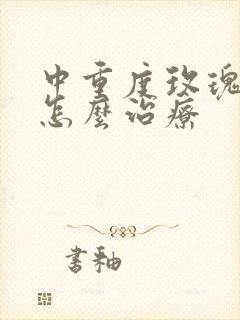 中重度玫瑰
怎麼治療
書釉